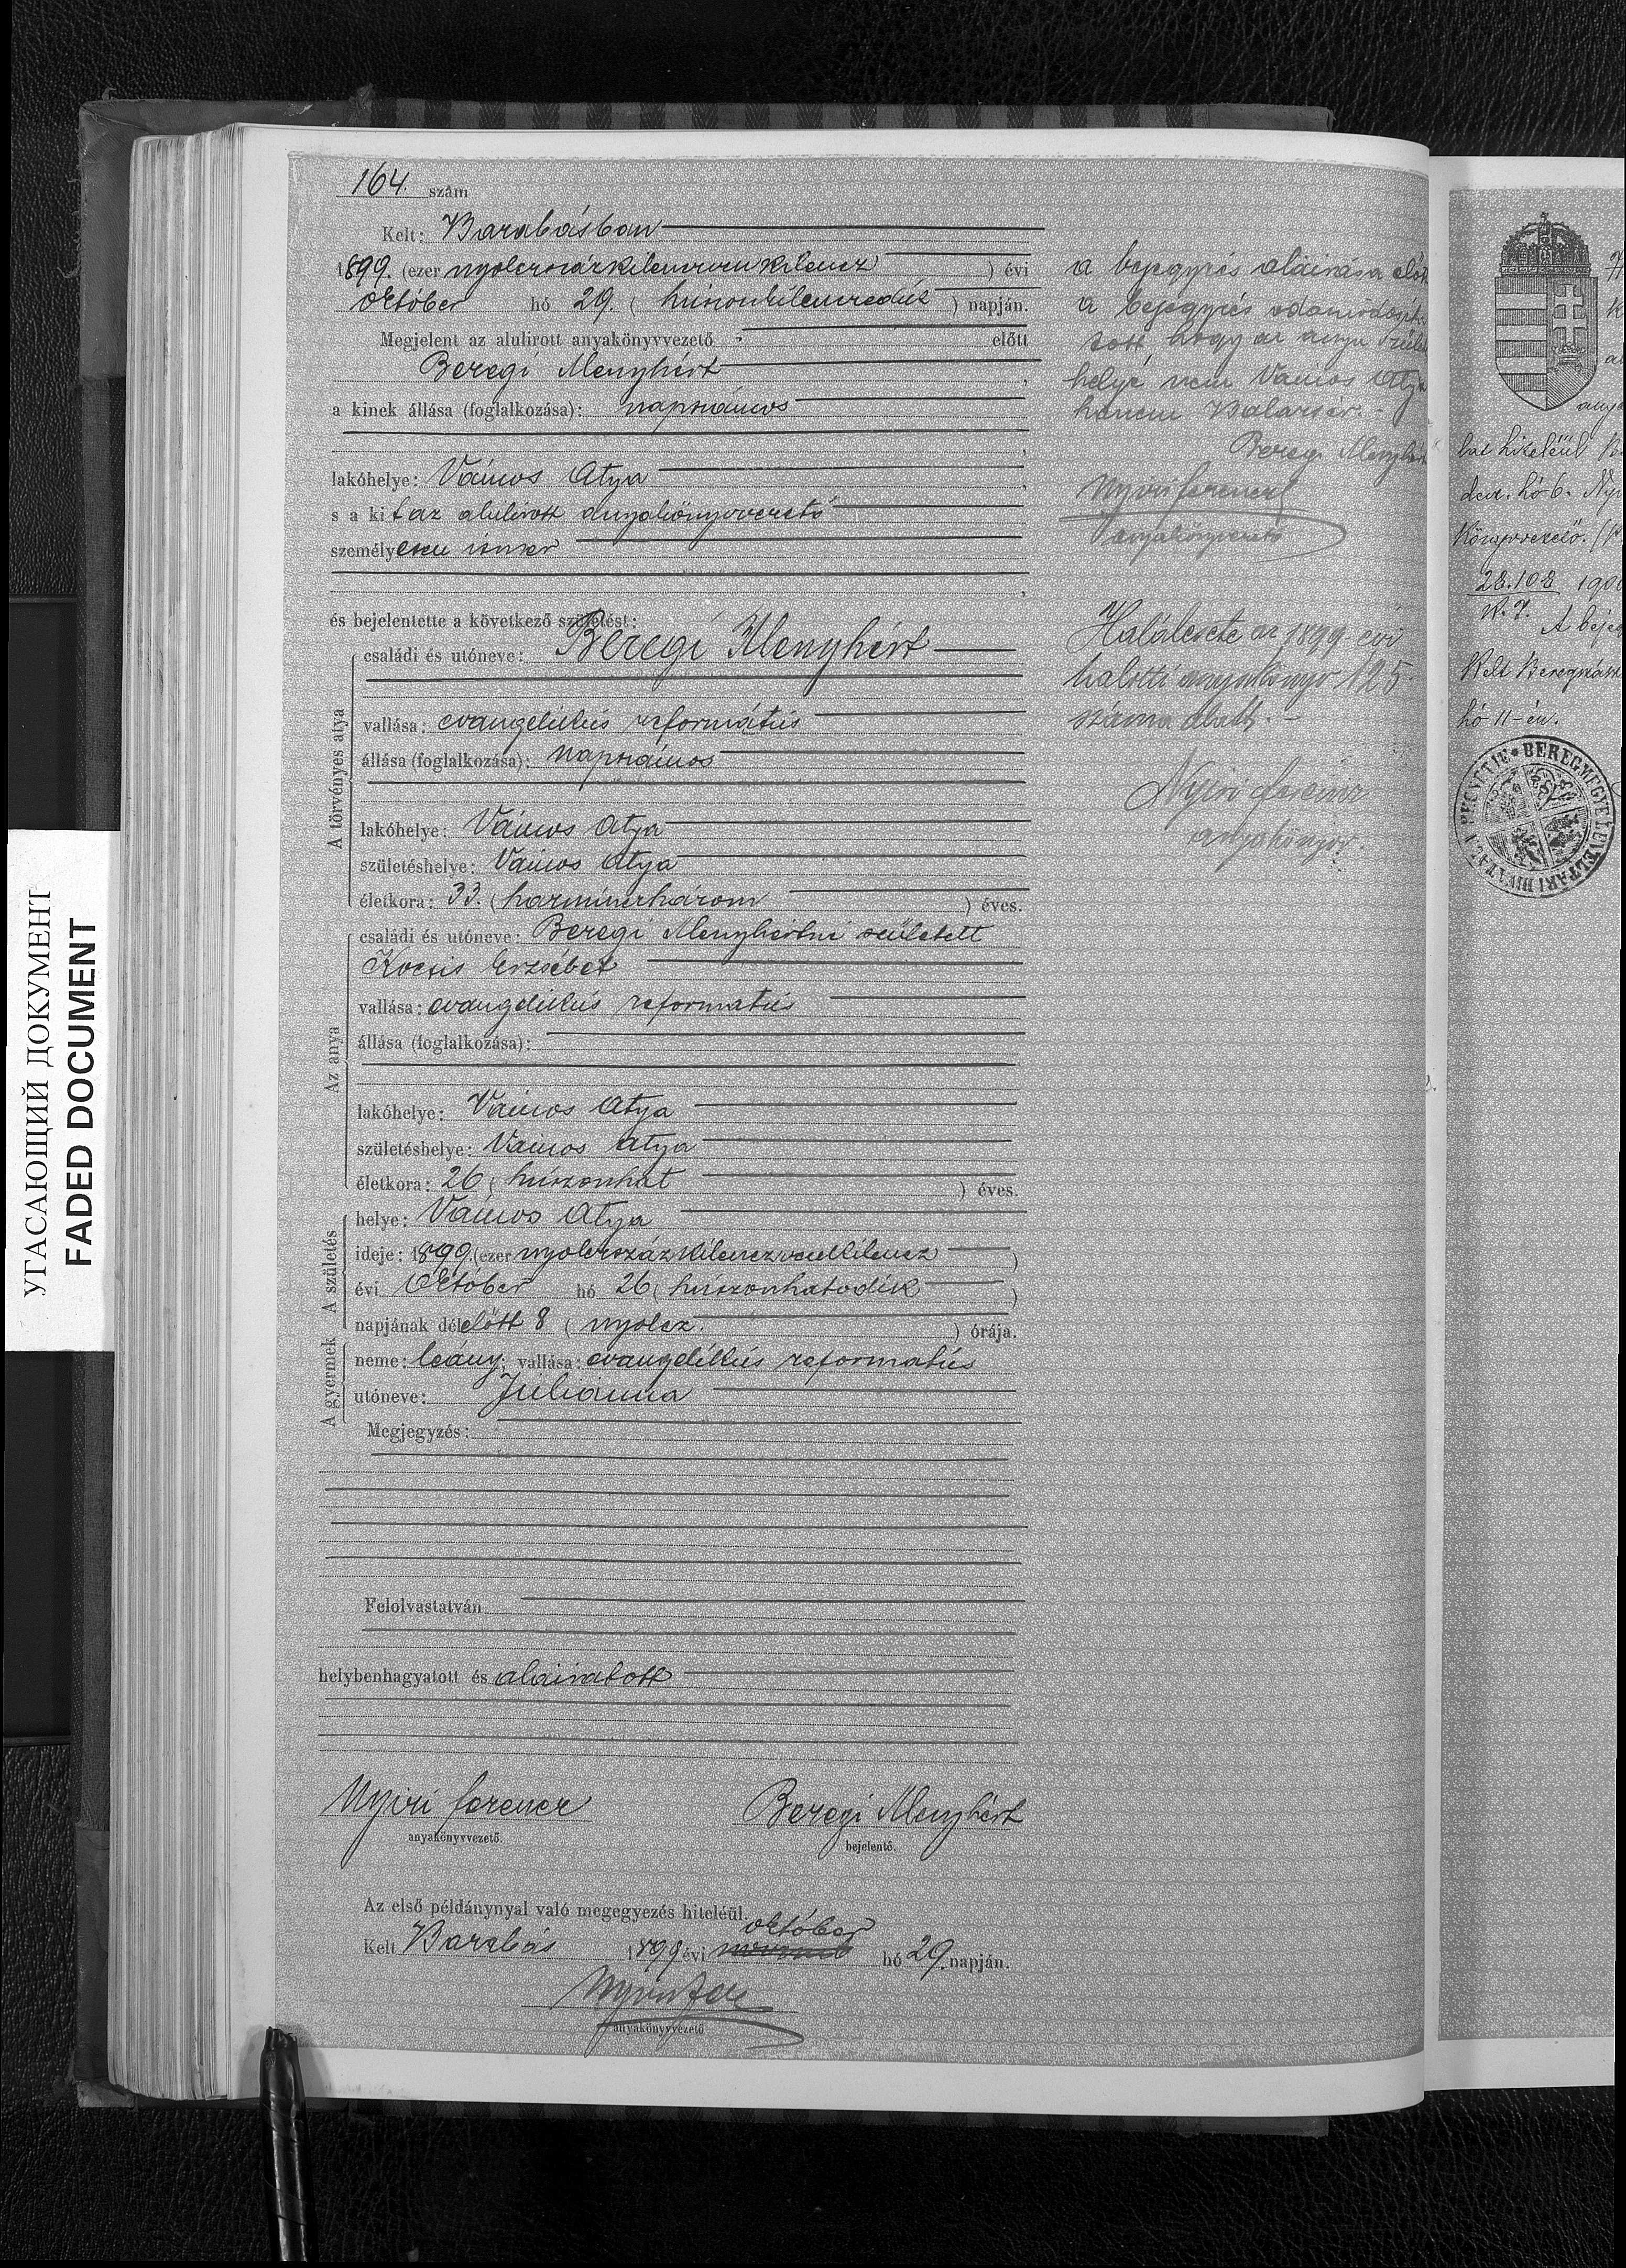 164. szám
Kelt: Barabásban
1899. (ezer nyolczszázkilenczvenkilencz) évi
október hó 29. (húszonkilenczedik) napján.
Megjelent az alulirott anyakönyvvezető előtt
Beregi Menyhért,
a kinek állása (foglalkozása): napszámos
,
lakóhelye: Vámos Atya,
s a kit az alulirott anyakönyvvezető
személyesen ismer
,
és bejelentette a következő születést:
A törvényes atya
családi és utóneve: Beregi Menyhért
vallása: evangélikus református
állása (foglalkozása): napszámos
lakóhelye: Vámos Atya
születéshelye: Vámos Atya
életkora: 33. (harminczhárom) éves.
Az anya
családi és utóneve: Beregi Menyhértné született
Kocsis Erzsébet
vallása: evangélikus református
állása (foglalkozása):
lakóhelye: Vámos Atya
születéshelye: Vámos Atya
életkora: 26 (húszonhat) éves.
A születés
helye: Vámos Atya
ideje: 1899. (ezer nyolczszázkilenczvenkilencz)
évi Október hó 26 (húszonhatodik)
napjának délelőtt 8 (nyolcz.) órája.
A gyermek
neme: leány; vallása: evangélikus református
utóneve: Juliánna
Megjegyzés:
Felolvastatván
helybenhagyatott és aláiratott
Nyiri Ferencz
anyakönyvvezető.
Beregi Menyhért
bejelentő.
Az első példánynyal való megegyezés hiteléül.
október
Kelt Barabás 1899 évi hó 29. napján.
Nyiri
anyakönyvvezető
a bejegyzés aláirása előtt
a bejegyzés
hogy az anya
helye nem Vámos Atya
hanem
Beregi Menyhért
Nyiri Ferencz
anyakönyvvezető
Halálesete az 1899 évi
halotti anyakönyv 125.
száma alatt. -
Nyiri Ferencz
anyakönyvv.
hó 6.
28.108 190
A beje
Kelt
hó 11-én.
BEREGMEGYEI LEVÉLTÁRI HIVATALA
УГАСАЮЩИЙ ДОКУМЕНТ
FADED DOCUMENT